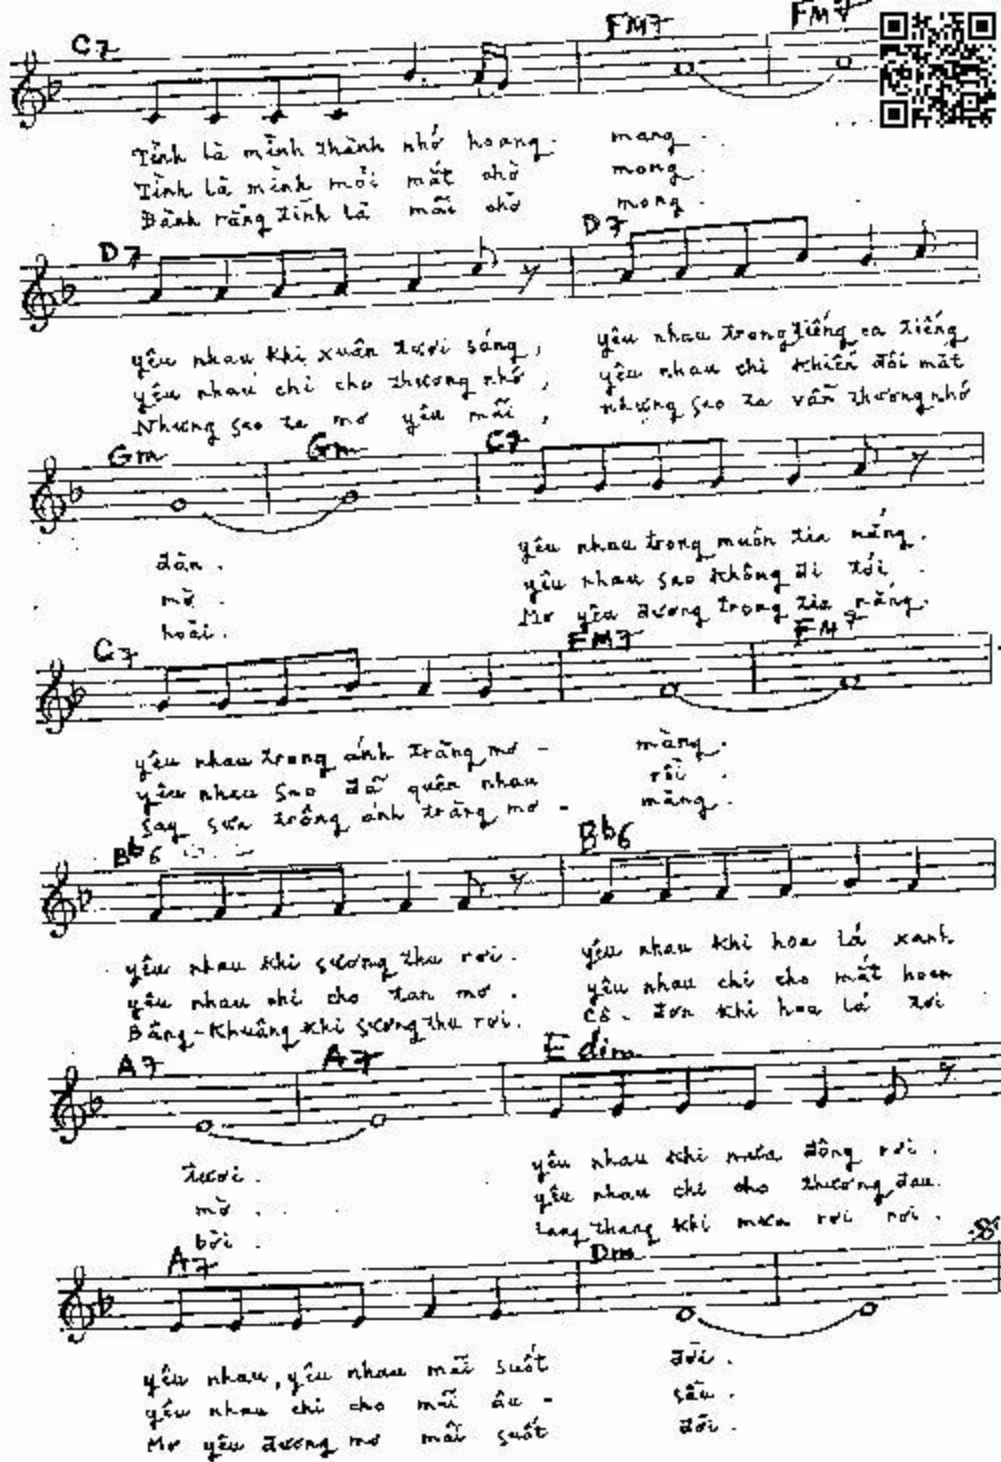 C7 FM7 FM7
Tình là mình thành nhớ hoang mang.
Tình là mình mỏi mắt chờ mong.
Đành rằng tình là mãi chờ mong.
D7 D7
yêu nhau khi xuân tươi sáng, yêu nhau trong tiếng ca tiếng
yêu nhau chi cho thương nhớ, yêu nhau chi khiến đôi mắt
Nhưng sao ta mơ yêu mãi, nhưng sao ta vẫn thương nhớ
Gm Gm C7
đàn. yêu nhau trong muôn tia nắng.
mờ. yêu nhau sao không đi tới.
hoài. Mơ yêu đương trong tia nắng.
C7 FM7 FM7
yêu nhau trong ánh trăng mơ - màng.
yêu nhau sao đã quên nhau rồi.
Say sưa trông ánh trăng mơ - màng.
Bb6 Bb6
yêu nhau khi sương thu rơi. yêu nhau khi hoa lá xanh
yêu nhau chi cho tan mơ. yêu nhau chi cho mắt hoen
Bâng-khuâng khi sương thu rơi. Cô - đơn khi hoa lá tơi
A7 A7 E dim
tươi. yêu nhau khi mưa đông rơi.
mờ. yêu nhau chi cho thương đau.
bời. Lang thang khi mưa rơi rơi.
A7 Dm
yêu nhau, yêu nhau mãi suốt đời.
yêu nhau chi cho mãi âu - sầu.
Mơ yêu đương mơ mãi suốt đời.